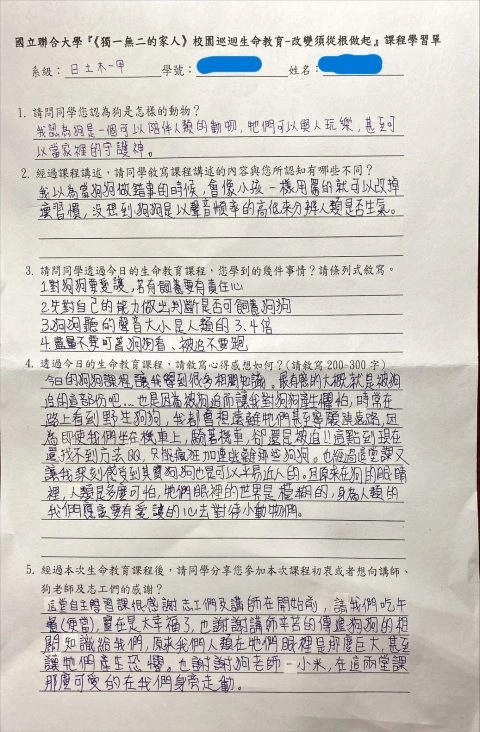 國立聯合大學『《獨一無二的家人》校園巡迴生命教育-改變須從根做起』課程學習單
系級：日土木一甲 學號： 姓名：
1. 請問同學您認為狗是怎樣的動物？
我認為狗是一個可以陪伴人類的動物，牠們可以與人玩樂，甚至可
以當家裡的守護神。
2. 經過課程講述，請同學敘寫課程講述的內容與您所認知有哪些不同？
我以為當狗狗做錯事的時候，會像小孩一樣用罵的就可以改掉
壞習慣，沒想到狗狗是以聲音頻率的高低來分辨人類是否生氣。
3. 請問同學透過今日的生命教育課程，您學到的幾件事情？請條列式敘寫。
1.對狗狗要愛護，若有飼養要有責任心
2.先對自己的能力做出判斷是否可飼養狗狗
3.狗狗聽的聲音大小是人類的3.4倍
4.盡量不要盯著狗狗看、被追不要跑
4. 透過今日的生命教育課程，請敘寫心得感想如何？(請敘寫 200-300 字)
今日的狗狗課程，讓我學到很多相關知識。最有感的大概就是被狗
追的這部份吧...也是因為被狗追而讓我對狗狗產生懼怕，時常在
路上看到野生狗狗，我都會想遠離牠們甚至寧願繞遠路，因
為即使我們坐在機車上，騎著機車，卻還是被追!!這點到現在
還找不到方法QQ，只能瘋狂加速逃離那些狗狗。也經過這堂課又
讓我深刻感受到其實狗狗也是可以平易近人的。且原來在狗的眼睛
裡，人類是多麼可怕，牠們眼裡的世界是模糊的，身為人類的
我們應當要有愛護的心去對待小動物們。
5. 經過本次生命教育課程後，請同學分享您參加本次課程初衷或者想向講師、
狗老師及志工們的感謝？
這堂自主學習課很感謝志工們及講師在開始前，請我們吃午
餐(便當)，實在是太幸福了，也謝謝講師辛苦的傳遞狗狗的相
關知識給我們，原來我們人類在牠們眼裡是那麼巨大，甚至
讓牠們產生恐懼。也謝謝狗老師-小米，在這兩堂課
那麼可愛的在我們身旁走動。